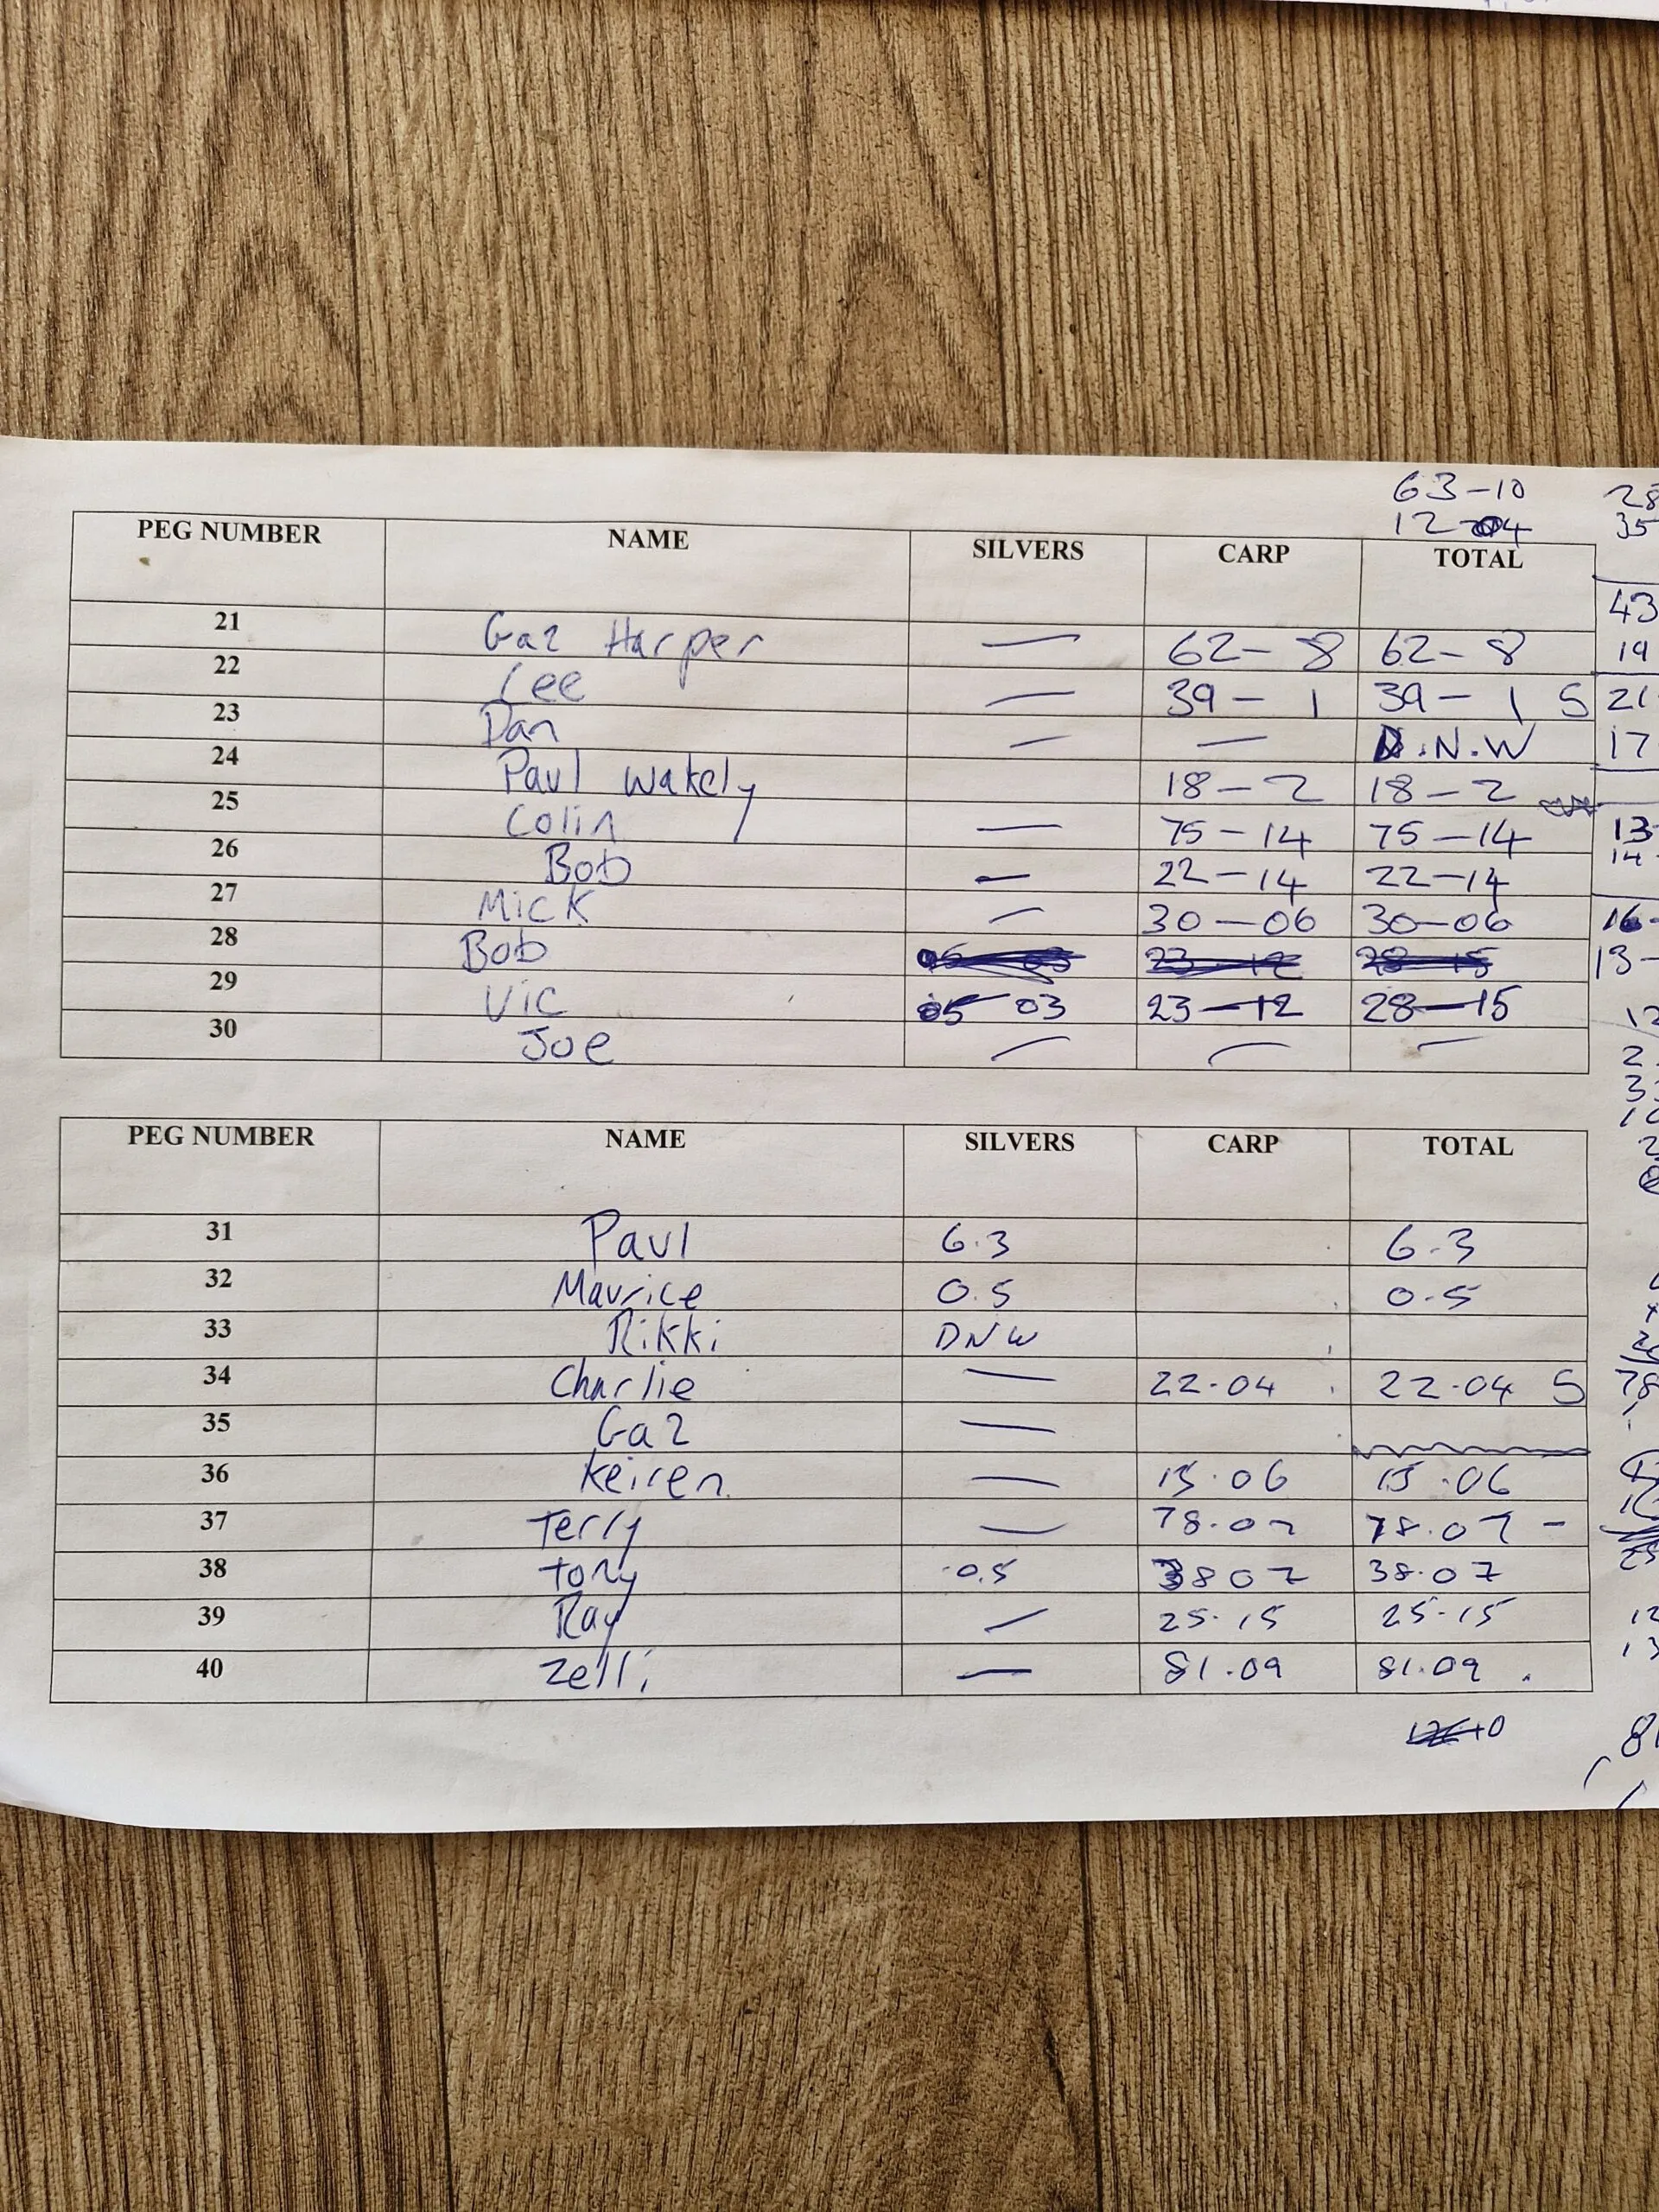 63-10
12-04
PEG NUMBER NAME SILVERS CARP TOTAL
21 Gaz Harper — 62-8 62-8
22 Lee — 39-1 39-1 S
23 Dan — — D.N.W
24 Paul Wakely 18-2 18-2
25 Colin — 75-14 75-14
26 Bob — 22-14 22-14
27 Mick — 30-06 30-06
28 Bob
29 Vic 05 03 23-12 28-15
30 Joe — — —
PEG NUMBER NAME SILVERS CARP TOTAL
31 Paul 6.3 6.3
32 Maurice 0.5 0.5
33 Rikki DNW
34 Charlie — 22.04 22.04 S
35 Gaz —
36 Keiren — 15.06 15.06
37 Terry — 78.07 78.07 -
38 Tony 0.5 38 07 38.07
39 Ray — 25.15 25.15
40 Zelli — 81.09 81.09
43
19
21
17
13
14
16-
13-